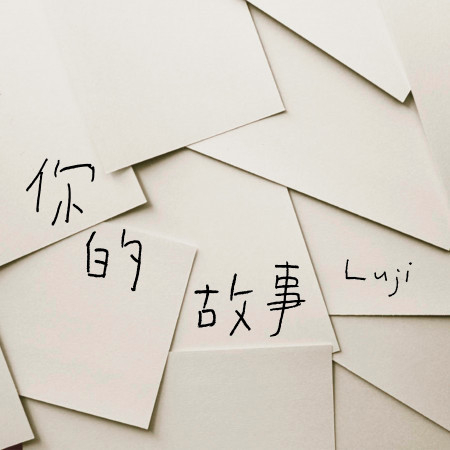 你的故事
Luji